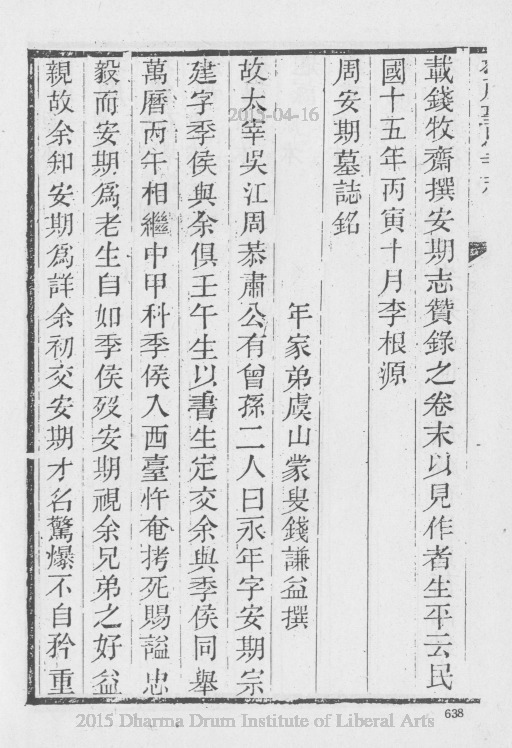 載錢牧齋撰安期志贊錄之卷末以見作者生平云民
國十五年丙寅十月李根源
周安期墓誌銘
年家弟虞山蒙叟錢謙益撰
故太宰吳江周恭肅公有曾孫二人曰永年字安期宗
建字季侯與余俱壬午生以書生定交余與季侯同舉
萬曆丙午相繼中甲科季侯入西臺忤奄拷死賜謚忠
毅而安期爲老生自如季侯歿安期視余兄弟之好益
親故余知安期爲詳余初交安期才名驚爆不自矜重
2015-04-16
638
2015 Dharma Drum Institute of Liberal Arts